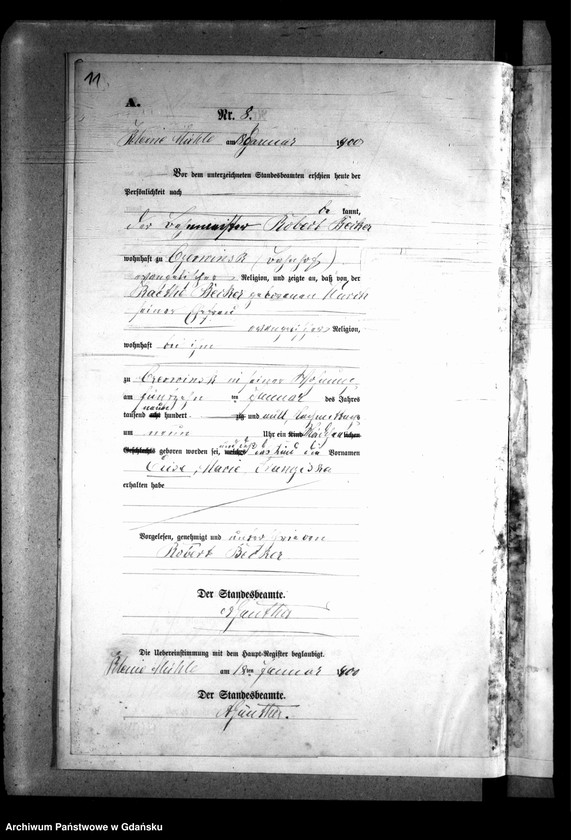 11
A.
Nr. 8.
Kleine Mühle am 18 Januar 1900
Vor dem unterzeichneten Standesbeamten erschien heute der
Persönlichkeit nach
be kannt,
der Bahnmeister Robert Becker
wohnhaft zu Czerwinsk (Bahnhof)
evangelischer Religion, und zeigte an, daß von der
Becker geborenen
seiner Ehefrau
evangelischer Religion,
wohnhaft bei ihm
zu Czerwinsk in seiner Wohnung
am ten Januar des Jahres
tausend neun hundert und
um neun Uhr ein Kind Mädchen lichen
Geschlechts geboren worden sei, welches und daß das Kind die Vornamen
Marie Franziska
erhalten habe
Vorgelesen, genehmigt und unterschrieben
Robert Becker
Der Standesbeamte.
Günther
Die Uebereinstimmung mit dem Haupt-Register beglaubigt.
Kleine Mühle am 18ten Januar 1900
Der Standesbeamte.
Günther.
Archiwum Państwowe w Gdańsku